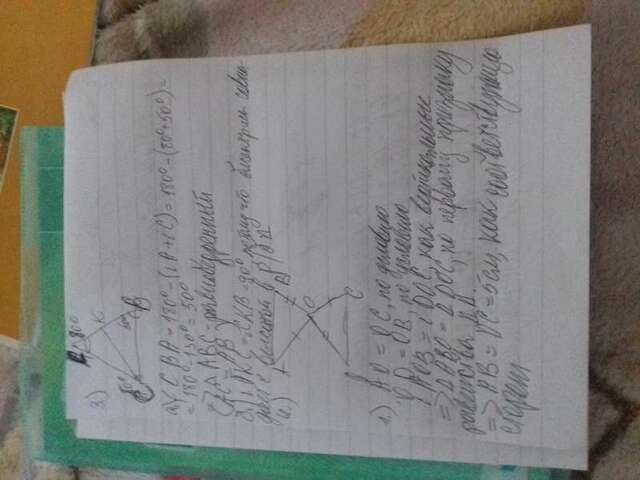 3.)
A 80°
K
50°
50°
C
B
a) ∠ C B A = 180° - (∠A+∠C) = 180° - (80°+50°) =
= 180° - 130° = 50°
=> Δ ABC - равнобедренный
(AC = AB)
∠AKC = ∠CKB = 90°, потому что биссектриса совпа-
дает с высотой в р/б Δ
4.)
B
O
C
1.) AO = OC, по условию
OD = OB, по условию
∠AOB = ∠DOC, как вертикальные
=> ΔABO = ΔDOC, по первому признаку
равенства Δ Δ.
=> AB = DC = 5см, как соответствующие
сторон